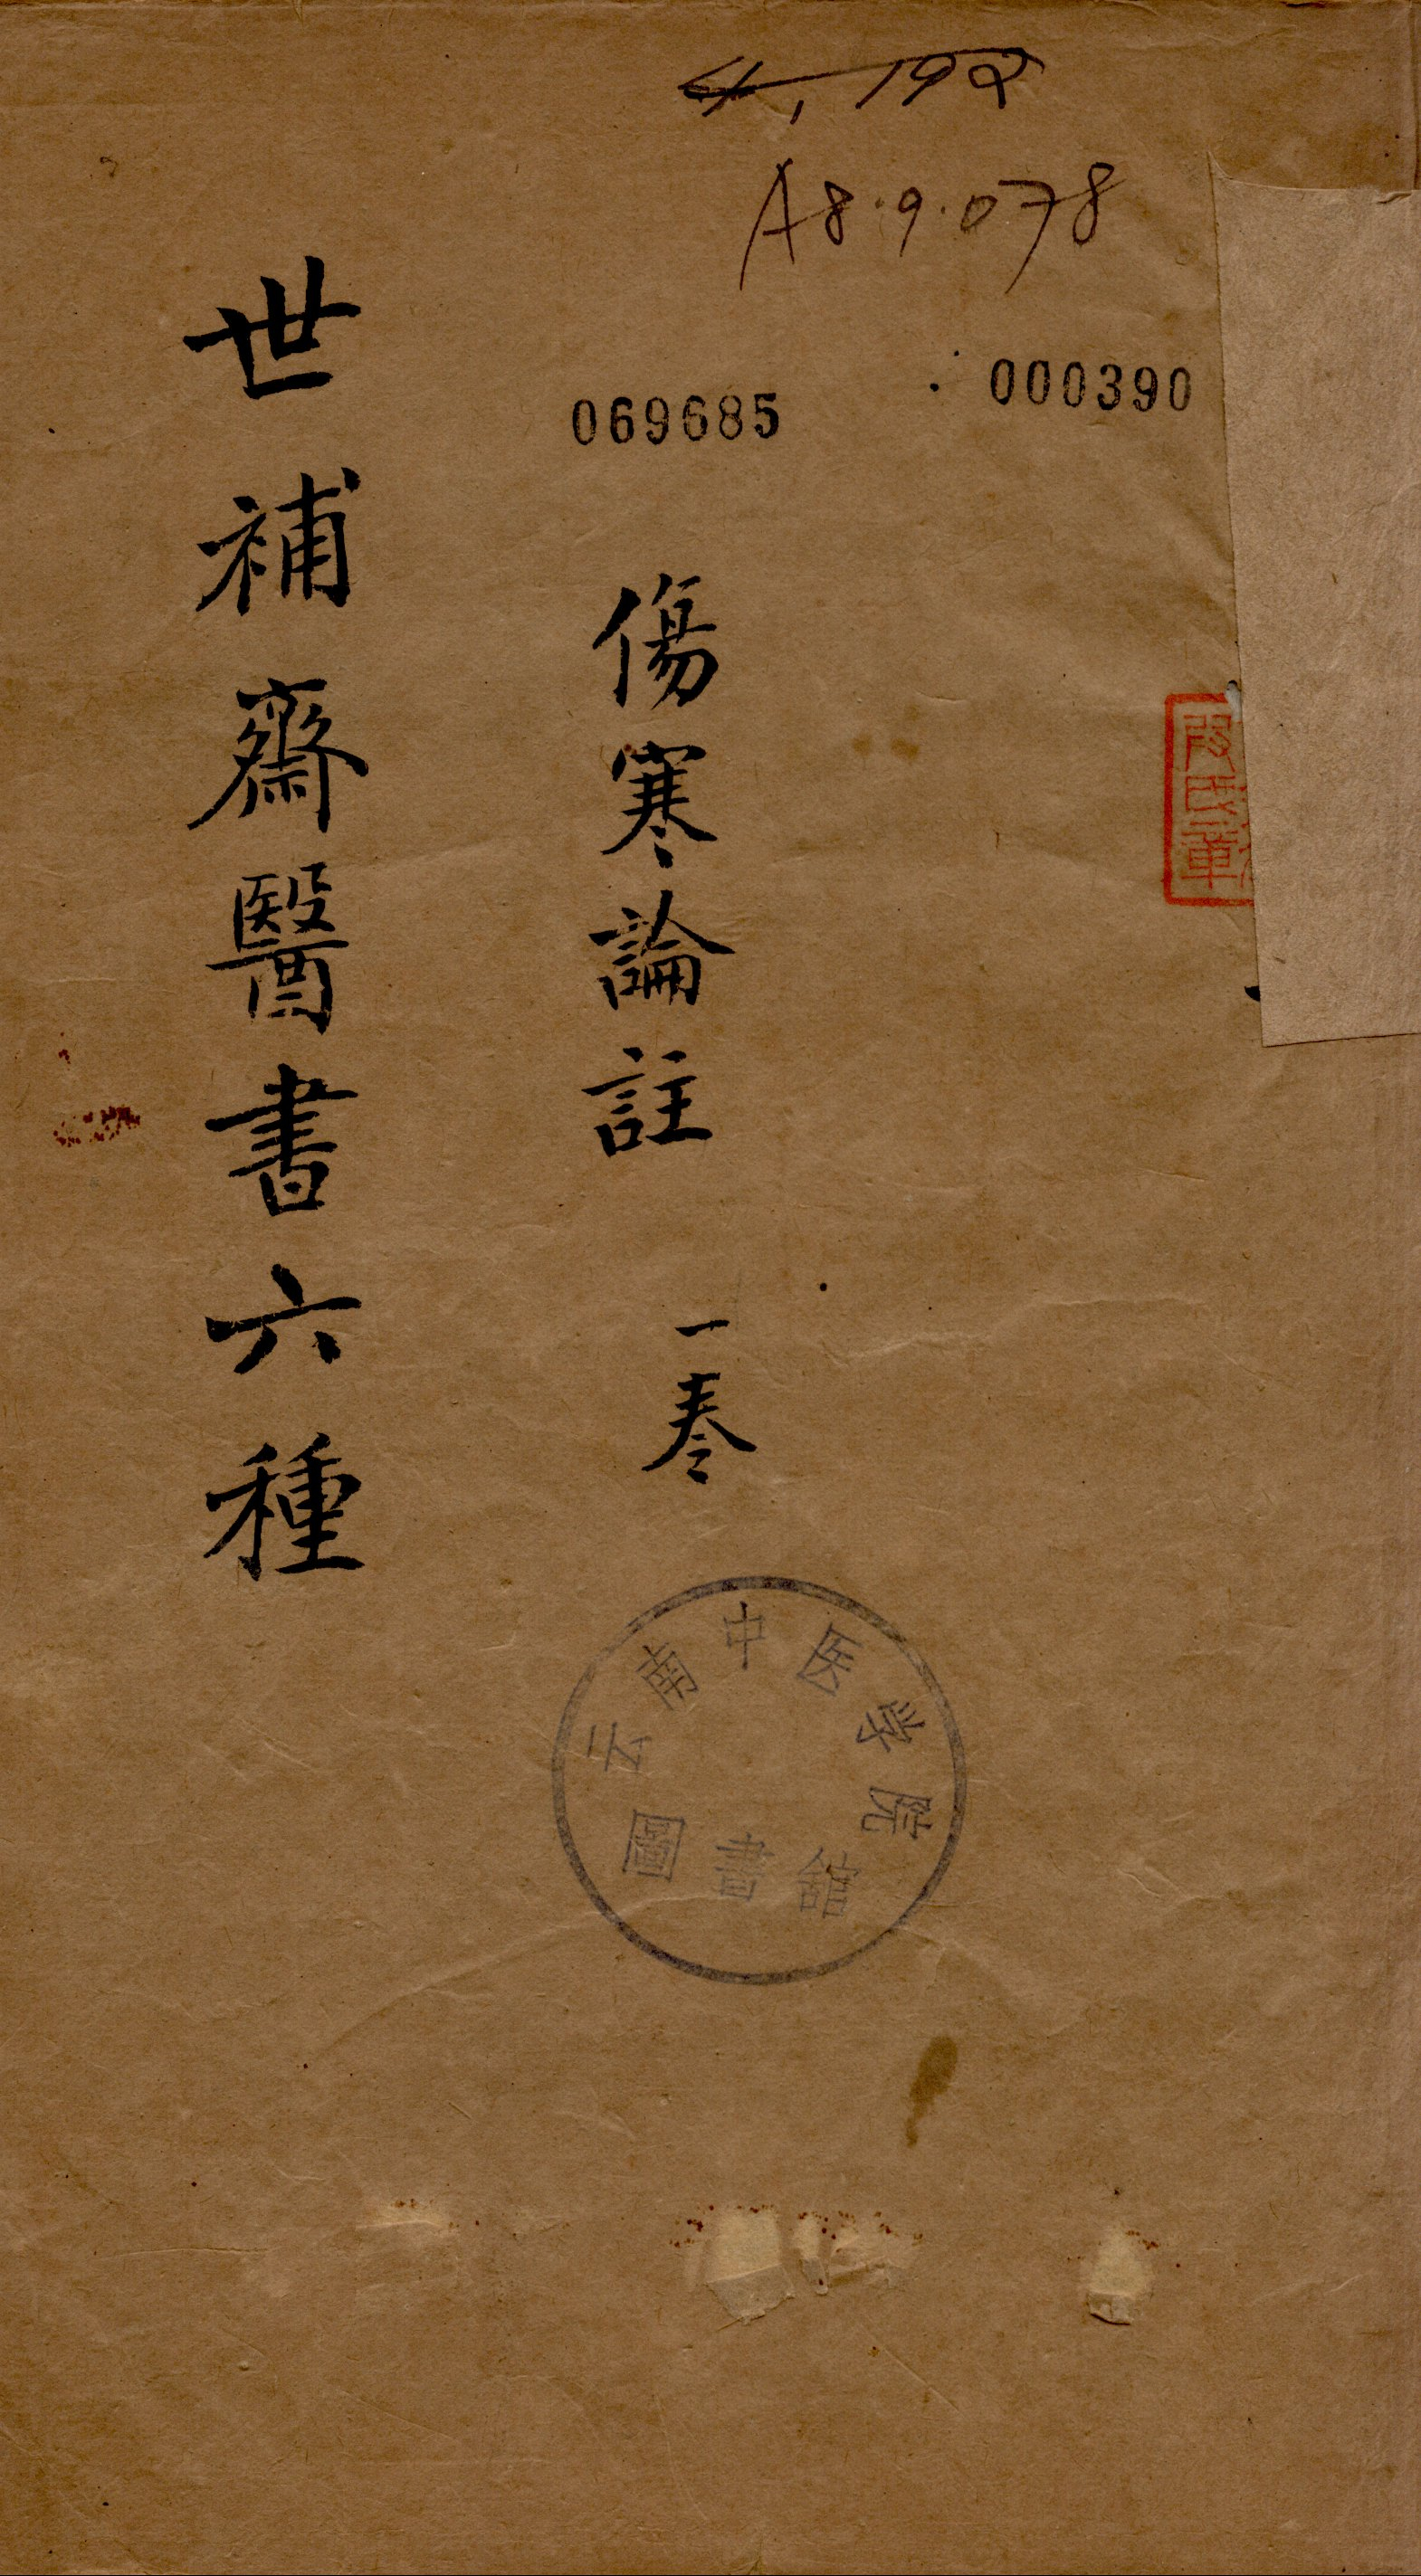 4,192
A8.9.078
000390
069685
傷寒論註 一卷
世補齋醫書六種
云南中医学院
圖書館